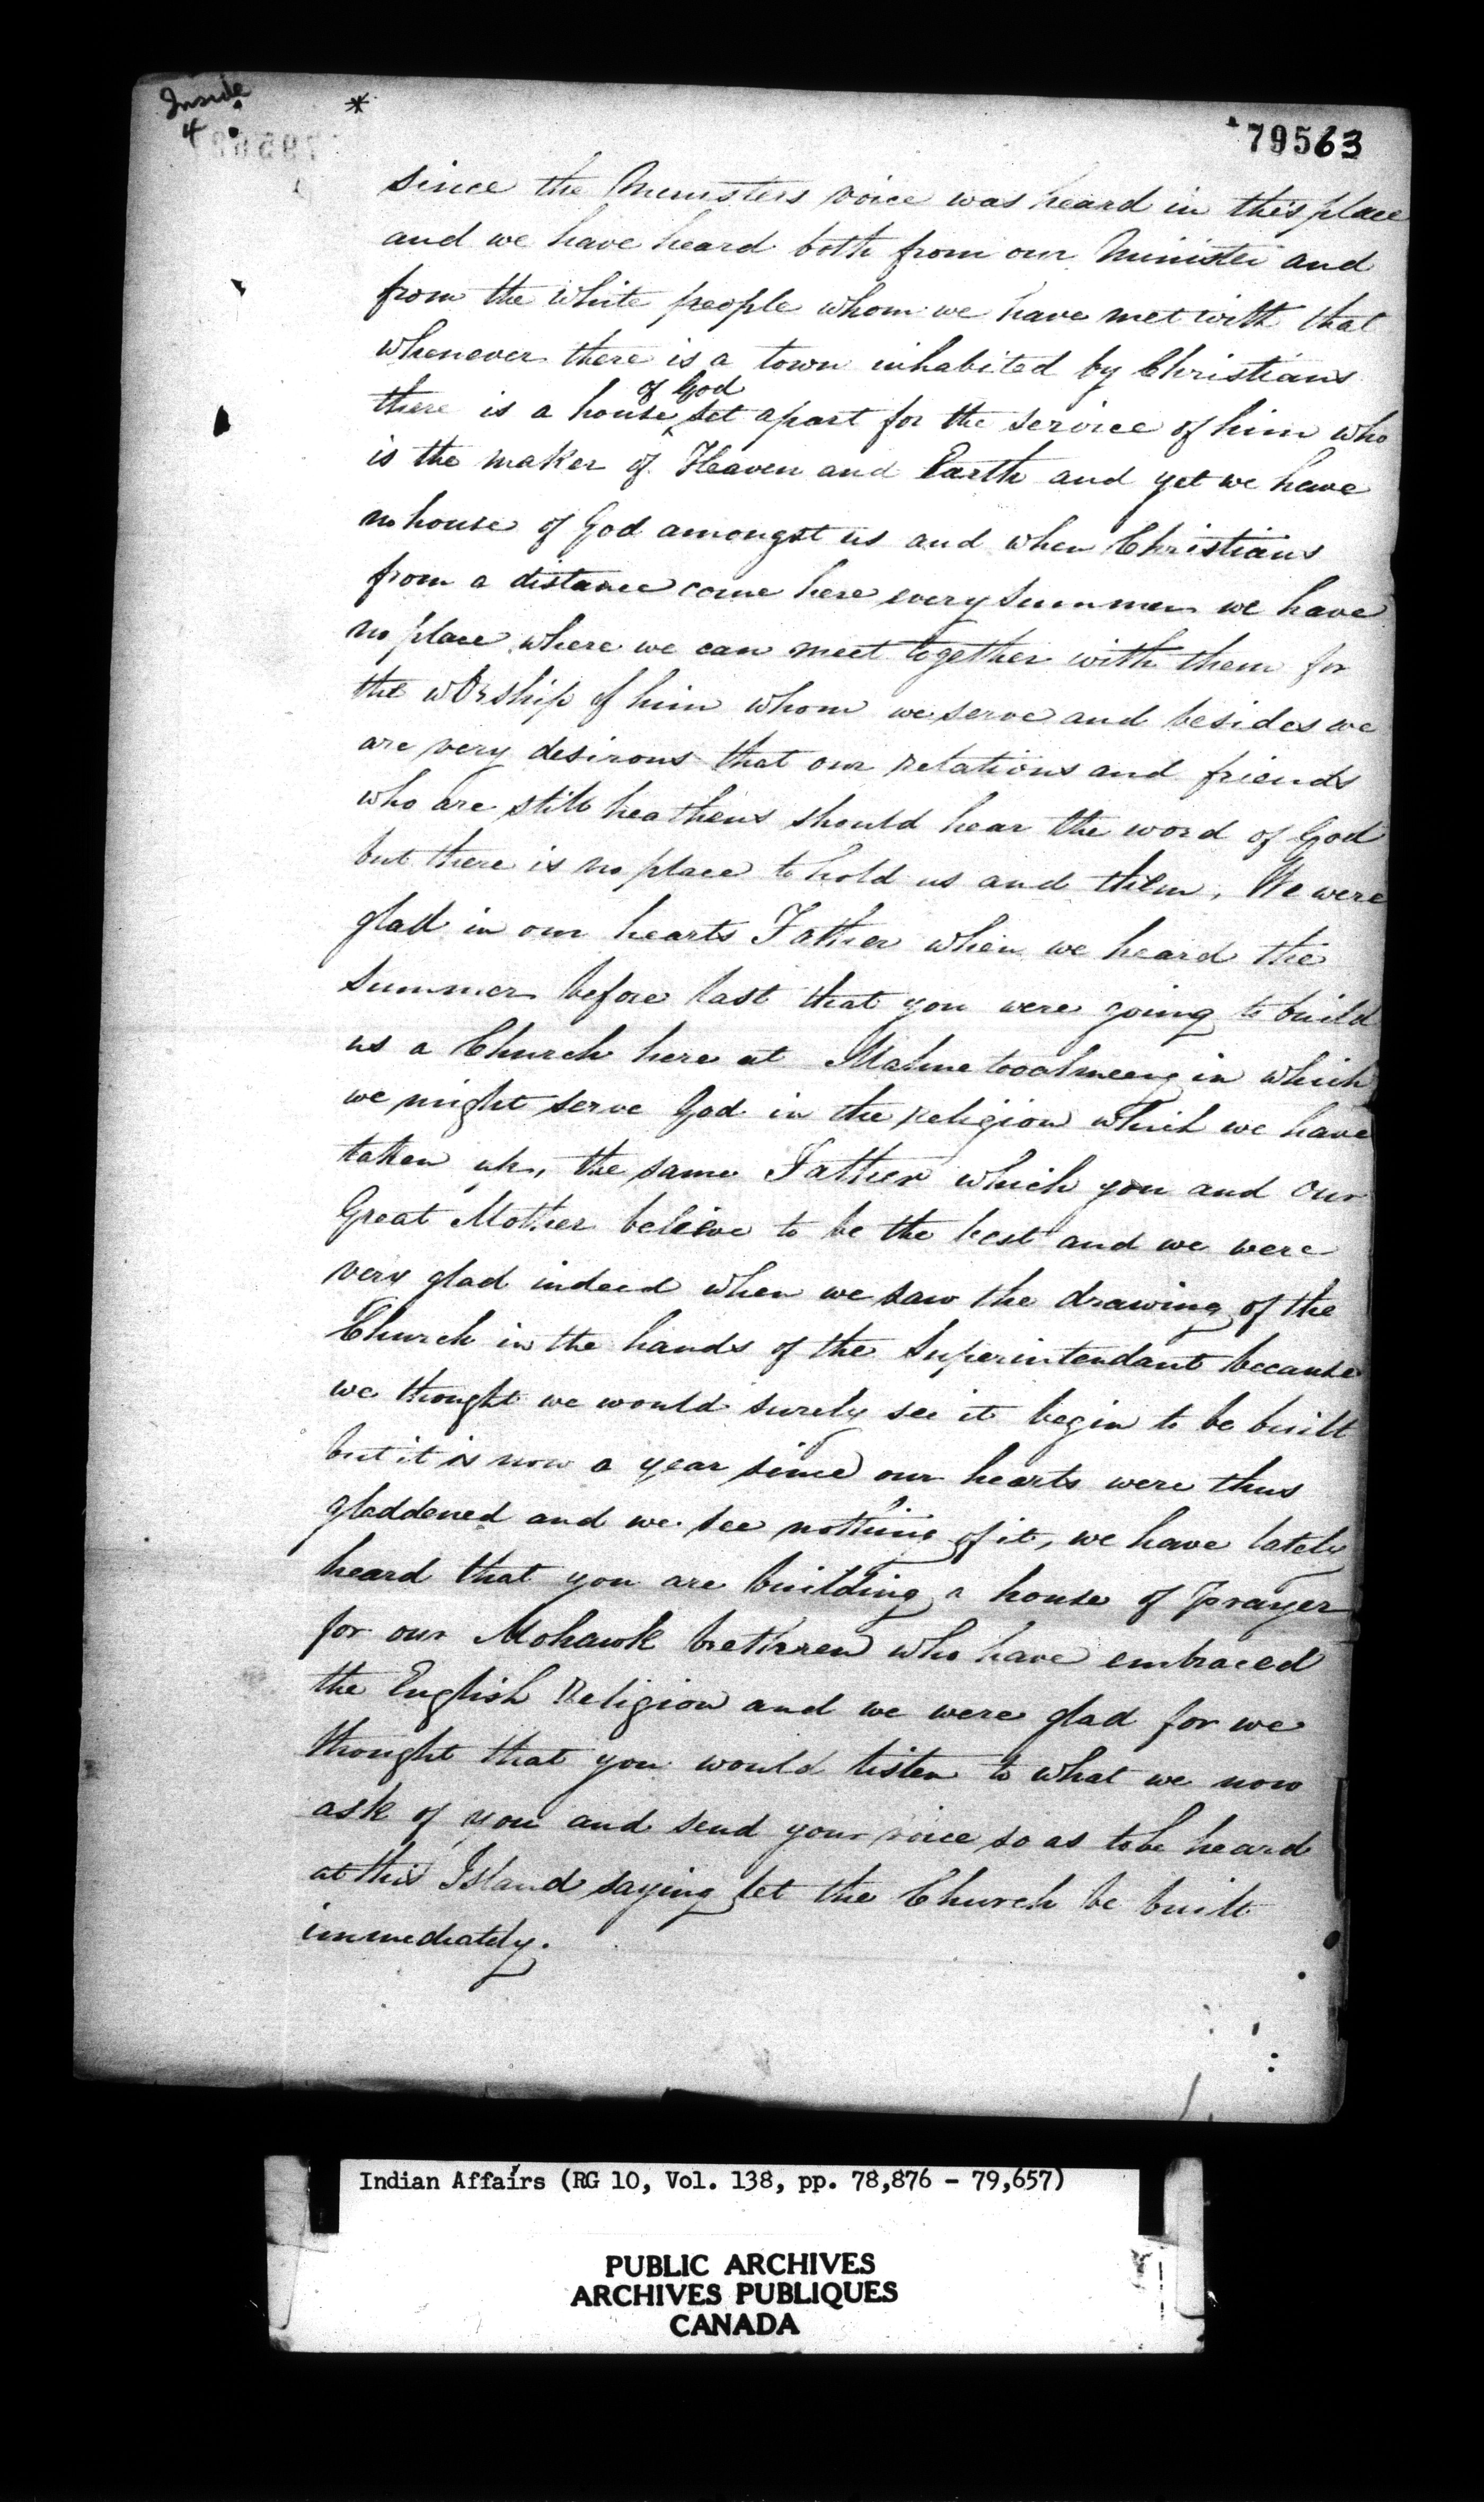 Inside
4
*
79563
since the Ministers voice was heard in this place
and we have heard both from our Minister and
from the white people whom we have met with that
whenever there is a town inhabited by Christians
of God
there is a house set apart for the service of him who
is the maker of Heaven and Earth and yet we have
no house of God amongst us and when Christians
from a distance come here every summer we have
no place where we can meet together with them for
the worship of him whom we serve and besides we
are very desirous that our relations and friends
who are still heathens should hear the word of God
but there is no place to hold us and them, We were
glad in our hearts Father when we heard the
summer before last that you were going to build
us a Church here at in which
we might serve God in the religion which we have
taken up, the same Father which you and our
Great Mother believe to be the best and we were
very glad indeed when we saw the drawing of the
Church in the hands of the Superintendant because
we thought we would surely see it begin to be built
but it is now a year since our hearts were thus
gladdened and we see nothing of it, we have lately
heard that you are building a house of prayer
for our Mohawk brethren who have embraced
the English Religion and we were glad for we
thought that you would listen to what we now
ask of you and send your voice so as to be heard
at this Island saying let the Church be built
immediately.
Indian Affairs (RG 10, Vol. 138, pp. 78,876 - 79,657)
PUBLIC ARCHIVES
ARCHIVES PUBLIQUES
CANADA